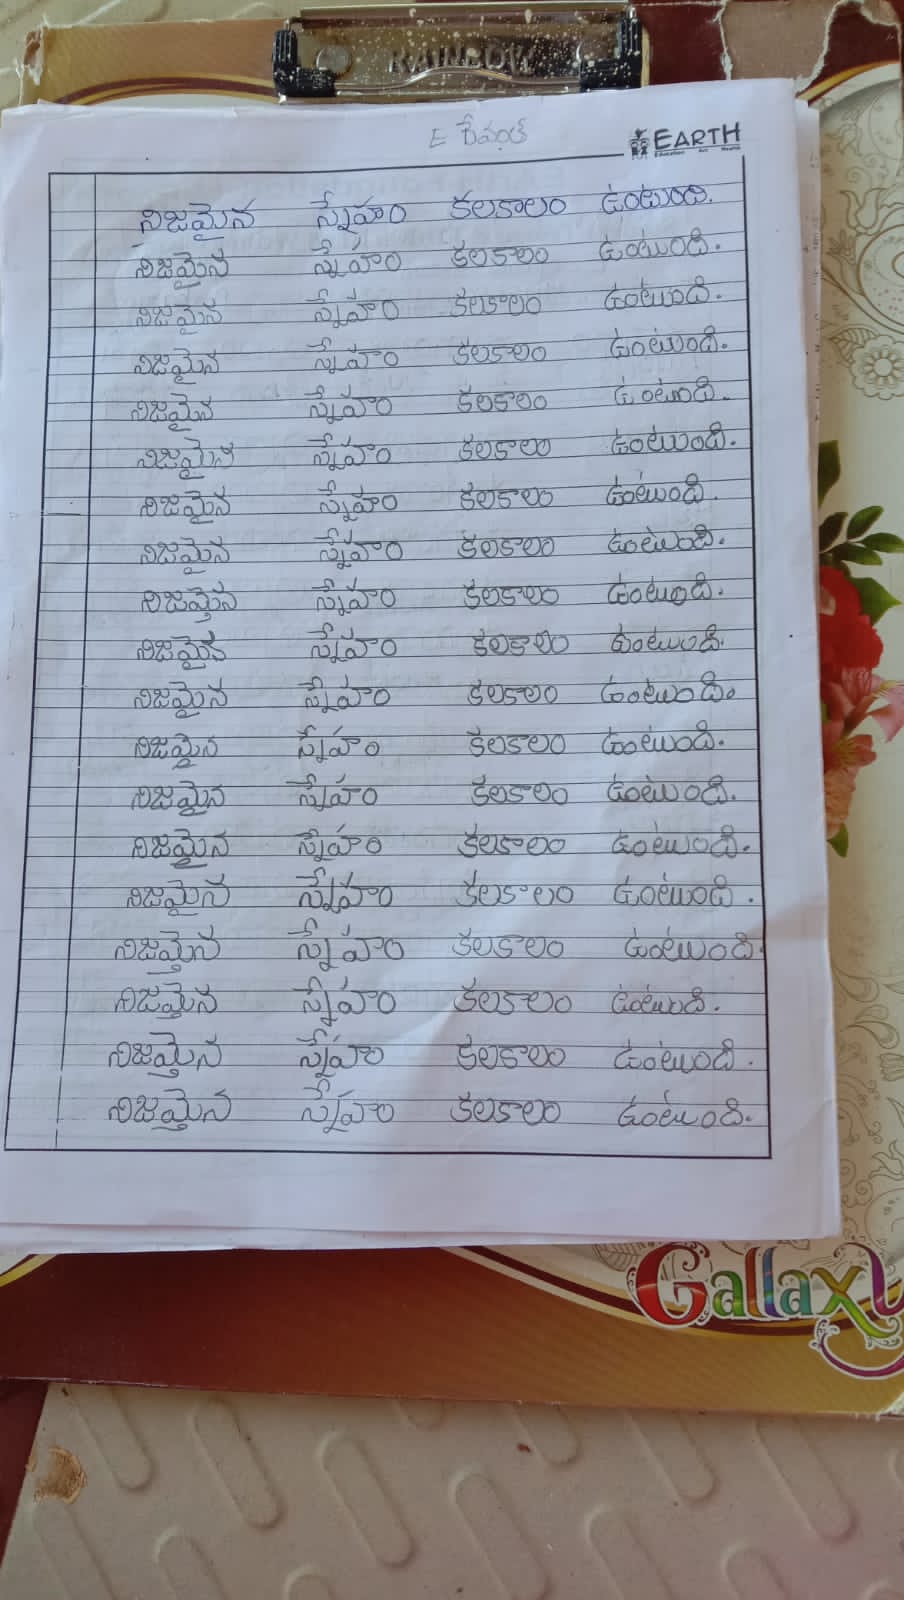 RAINBOW
E రేవంత్
EARTH
నిజమైన స్నేహం కలకాలం ఉంటుంది.
నిజమైన స్నేహం కలకాలం ఉంటుంది.
నిజమైన స్నేహం కలకాలం ఉంటుంది.
నిజమైన స్నేహం కలకాలం ఉంటుంది.
నిజమైన స్నేహం కలకాలం ఉంటుంది.
నిజమైన స్నేహం కలకాలం ఉంటుంది.
నిజమైన స్నేహం కలకాలం ఉంటుంది.
నిజమైన స్నేహం కలకాలం ఉంటుంది.
నిజమైన స్నేహం కలకాలం ఉంటుంది.
నిజమైన స్నేహం కలకాలం ఉంటుంది.
నిజమైన స్నేహం కలకాలం ఉంటుంది.
నిజమైన స్నేహం కలకాలం ఉంటుంది.
నిజమైన స్నేహం కలకాలం ఉంటుంది.
నిజమైన స్నేహం కలకాలం ఉంటుంది.
నిజమైన స్నేహం కలకాలం ఉంటుంది.
నిజమైన స్నేహం కలకాలం ఉంటుంది.
నిజమైన స్నేహం కలకాలం ఉంటుంది.
నిజమైన స్నేహం కలకాలం ఉంటుంది.
నిజమైన స్నేహం కలకాలం ఉంటుంది.
Gallaxy